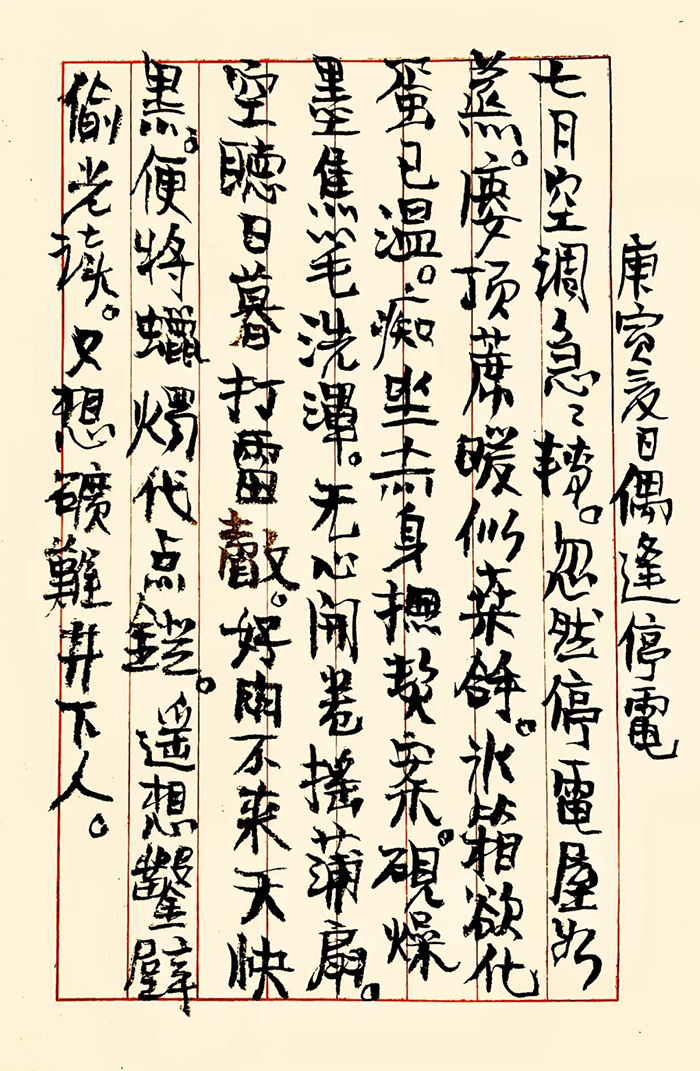 庚寅夏日偶逢停電
七月空調急々轉。忽然停電屋如
蒸。廔顶蓆暖似餅。冰箱欲化
蛋已温。痴坐赤身撫熱案。硯燥
墨焦笔洗渾。无心開卷摇蒲扇。
空聽日暮打雷鼓。好雨不来天快
黑。便将蠟燭代点鐙。遥想鑿壁
偷光读。又想礦難井下人。